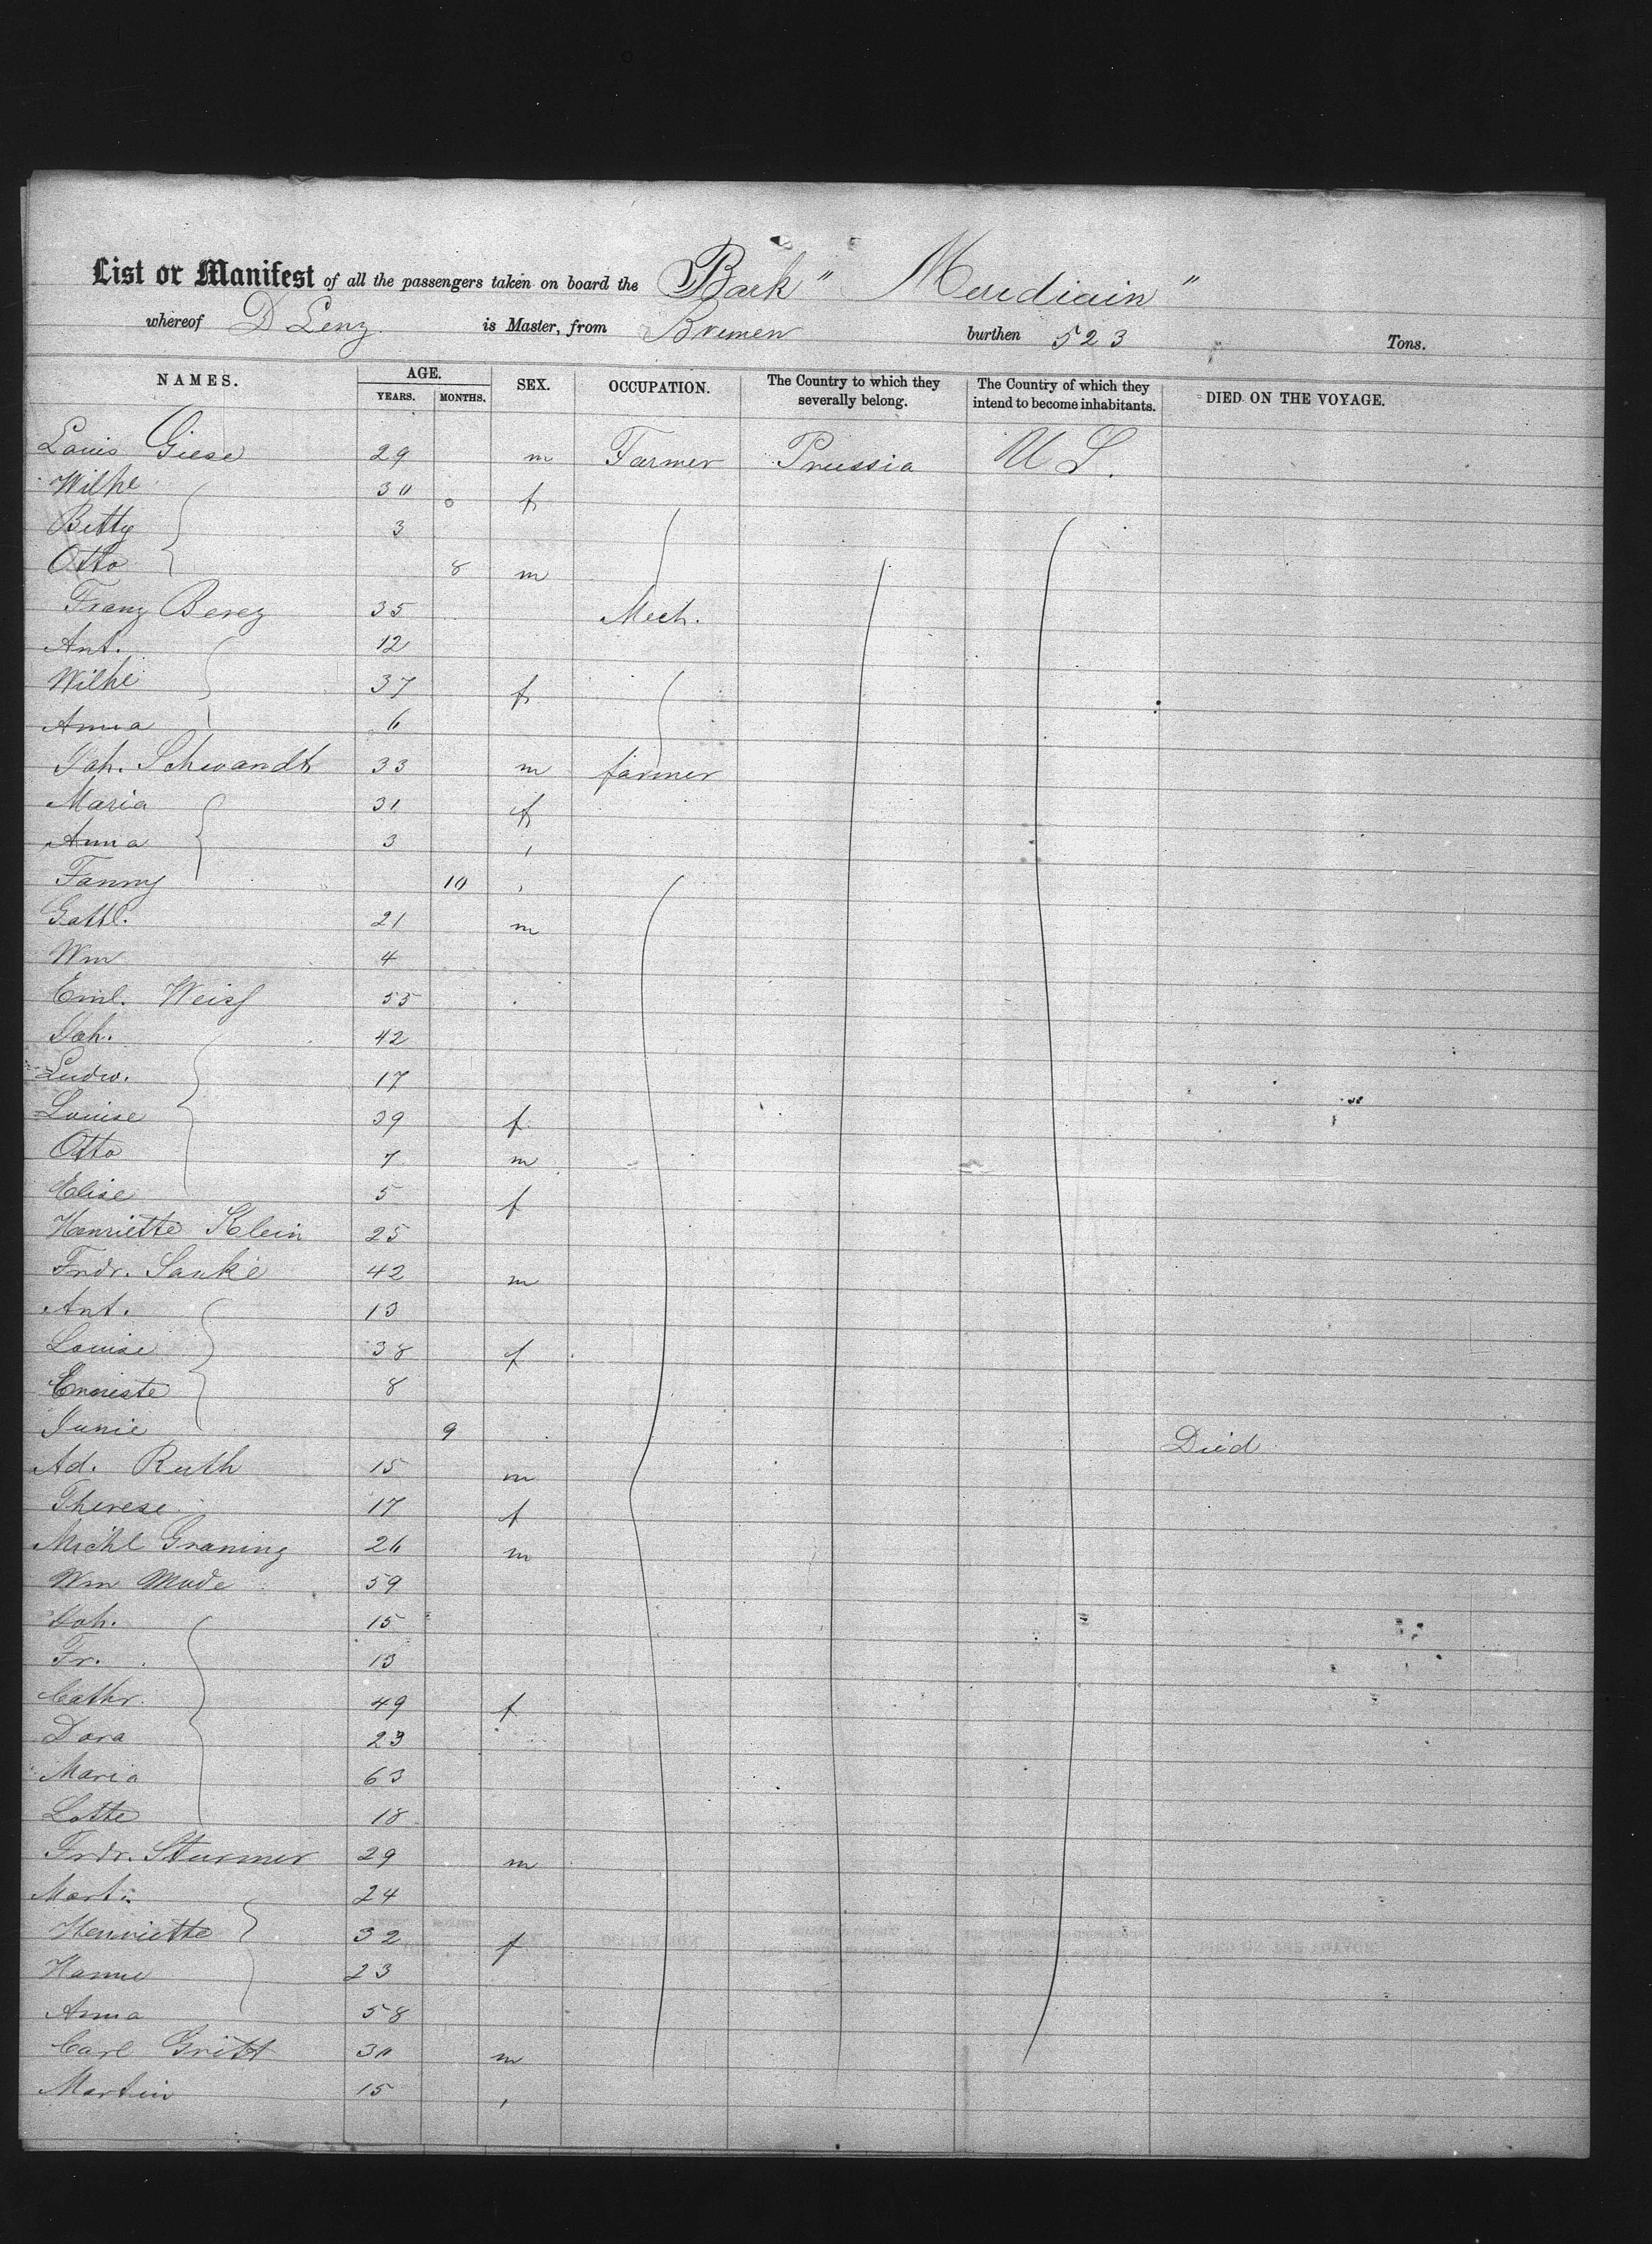 List or Manifest of all the passengers taken on board the Bark " Meridiain "
whereof D Lenz is Master, from Bremen burthen 523 Tons.
NAMES. AGE. YEARS. MONTHS. SEX. OCCUPATION. The Country to which they severally belong. The Country of which they intend to become inhabitants. DIED ON THE VOYAGE.
Louis Giese 29 m Farmer Prussia U S.
Wilhe 30 f
Betty 3
Otto 8 m
Franz Berez 35 Mech.
Ant. 12
Wilhe 37 f
Anna 6
Joh. Schwandt 33 m farmer
Maria 31 f
Anna 3 "
Fanny 10 "
Gottl. 21 m
Wm 4
Eml. Weiss 55
Joh. 42
Ludw. 17
Louise 39 f
Otto 7 m
Elise 5 f
Henriette Klein 25
Frdr. Sanke 42 m
Ant. 13
Louise 38 f
8
9 Died
Ad. Ruth 15 m
Therese 17 f
Michl Graning 26 m
Wm Mude 59
Joh. 15
Fr. 13
Cathr. 49 f
Dora 23
Maria 63
Lotte 18
Frdr. Sturmer 29 m
Mart: 24
Henriette 32 f
Hanne 23
Anna 58
Carl Gritt 30 m
Martin 15 "